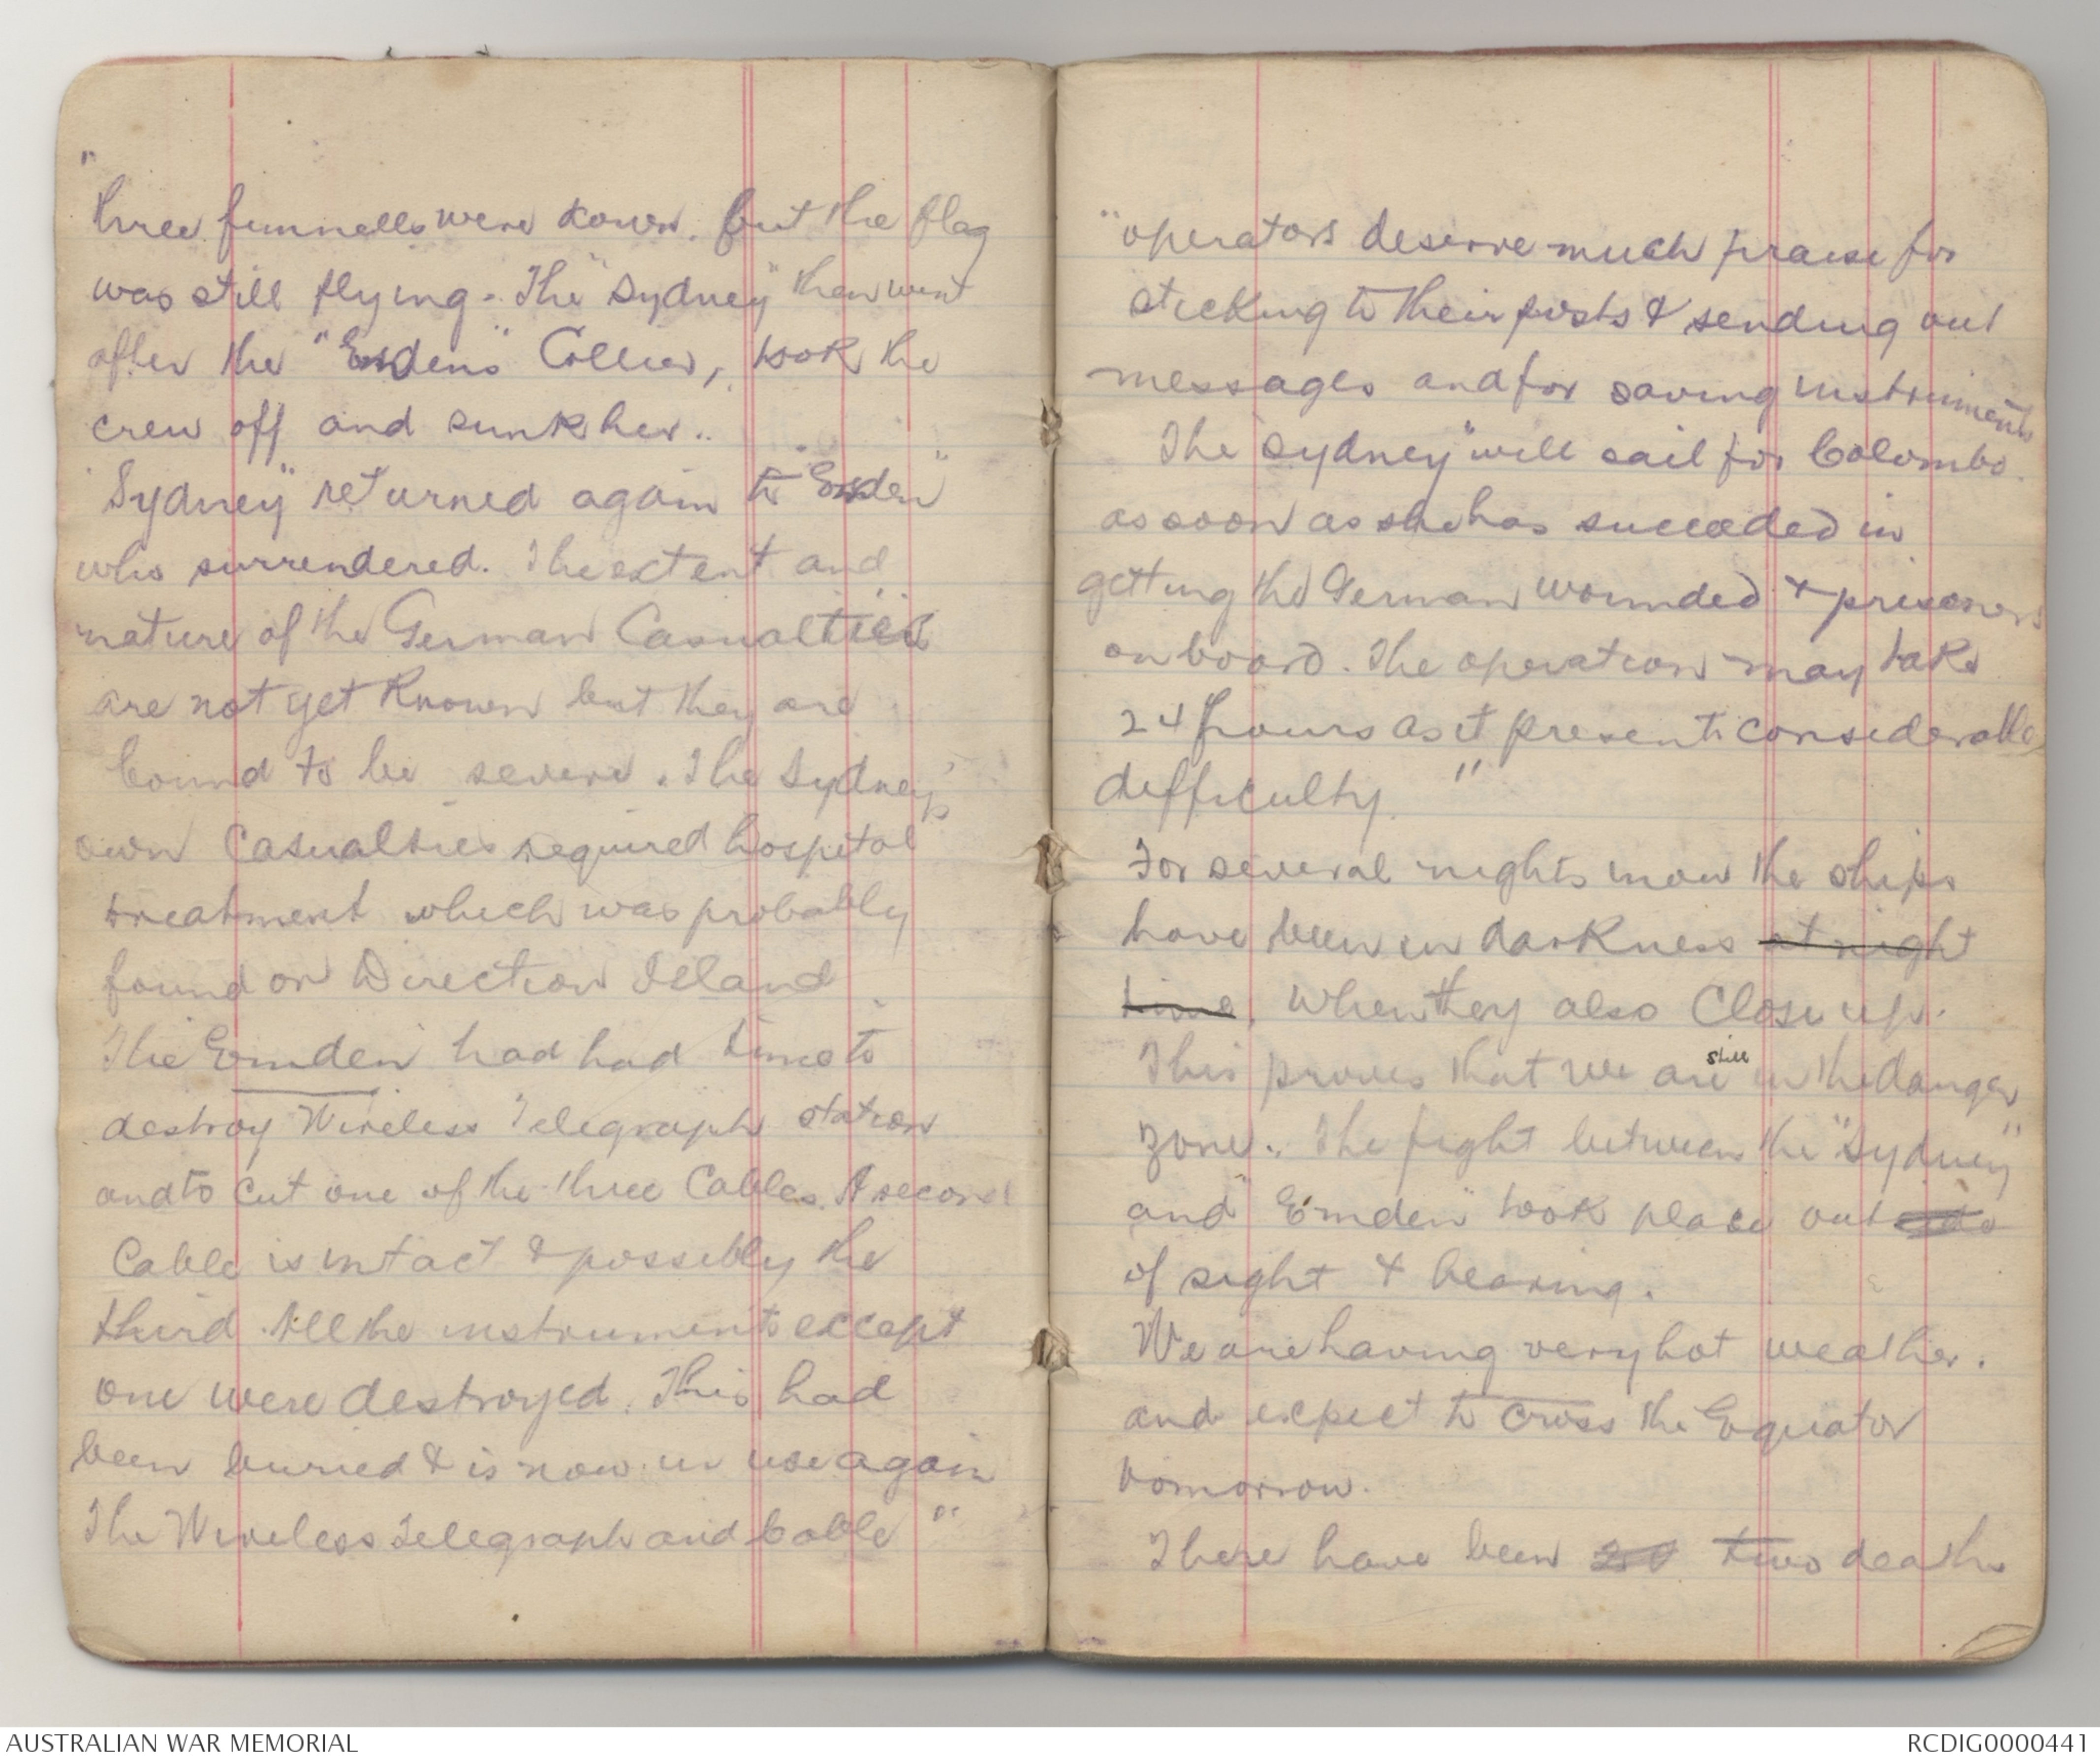 "
three funnells were down. but the flag
was still flying. The "Sydney" then went
after the "Emden's" Collier, took the
crew off and sunk her..
"Sydney" returned again to "Emden"
who surrendered. The extent and
nature of the German Casualties
are not yet known but they are
bound to be severe. The Sydney's
own Casualties required hospital
treatment which was probably
found on Direction Island.
The Emden had had time to
destroy Wireless Telegraph station
and to cut one of the three Cables. A second
Cable is intact & possibly the
third. All the instruments except
one were destroyed. This had
been buried & is now in use again
The Wireless Telegraph and Cable "
"operators deserve much praise for
sticking to their posts & sending out
messages and for saving instruments
The "Sydney" will sail for Colombo.
as soon as she has succeeded in
getting the German wounded & prisoners
on board. The operation may take
24 hours as it presents considerable
difficulty. "
For several nights now the ships
have been in darkness at night
time. When they also Close up.
This proves that we are still in the danger
zone. The fight between the "Sydney"
and "Emden" took place out
of sight & hearing.
We are having very hot weather.
and expect to cross the Equator
tomorrow.
There have been two deaths
AUSTRALIAN WAR MEMORIAL
RCDIG0000441